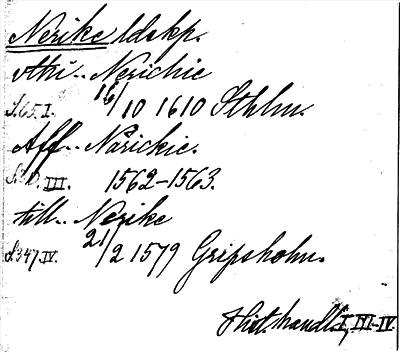 Nerike ldskp.
uthi.. Nerichie
S.65.I. 16/10 1610 Sthlm.
Aff.. Närickie.
III. 1562-1563.
till.. Nerike
S.347.IV. 21/2 1579 Gripsholm.
Hist. handl. I, III-IV.